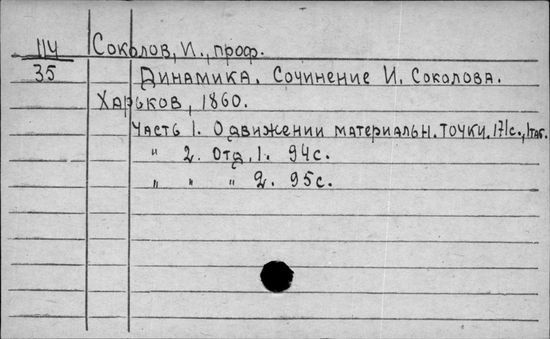 114 Соколов, И., проф.
35 Динамика. Сочинение И. Соколова.
Харьков, 1860.
Часть 1. О движении материальн. точки. 171с., 1таб.
" 2. Отд. 1. 94с.
" " " 2. 95с.